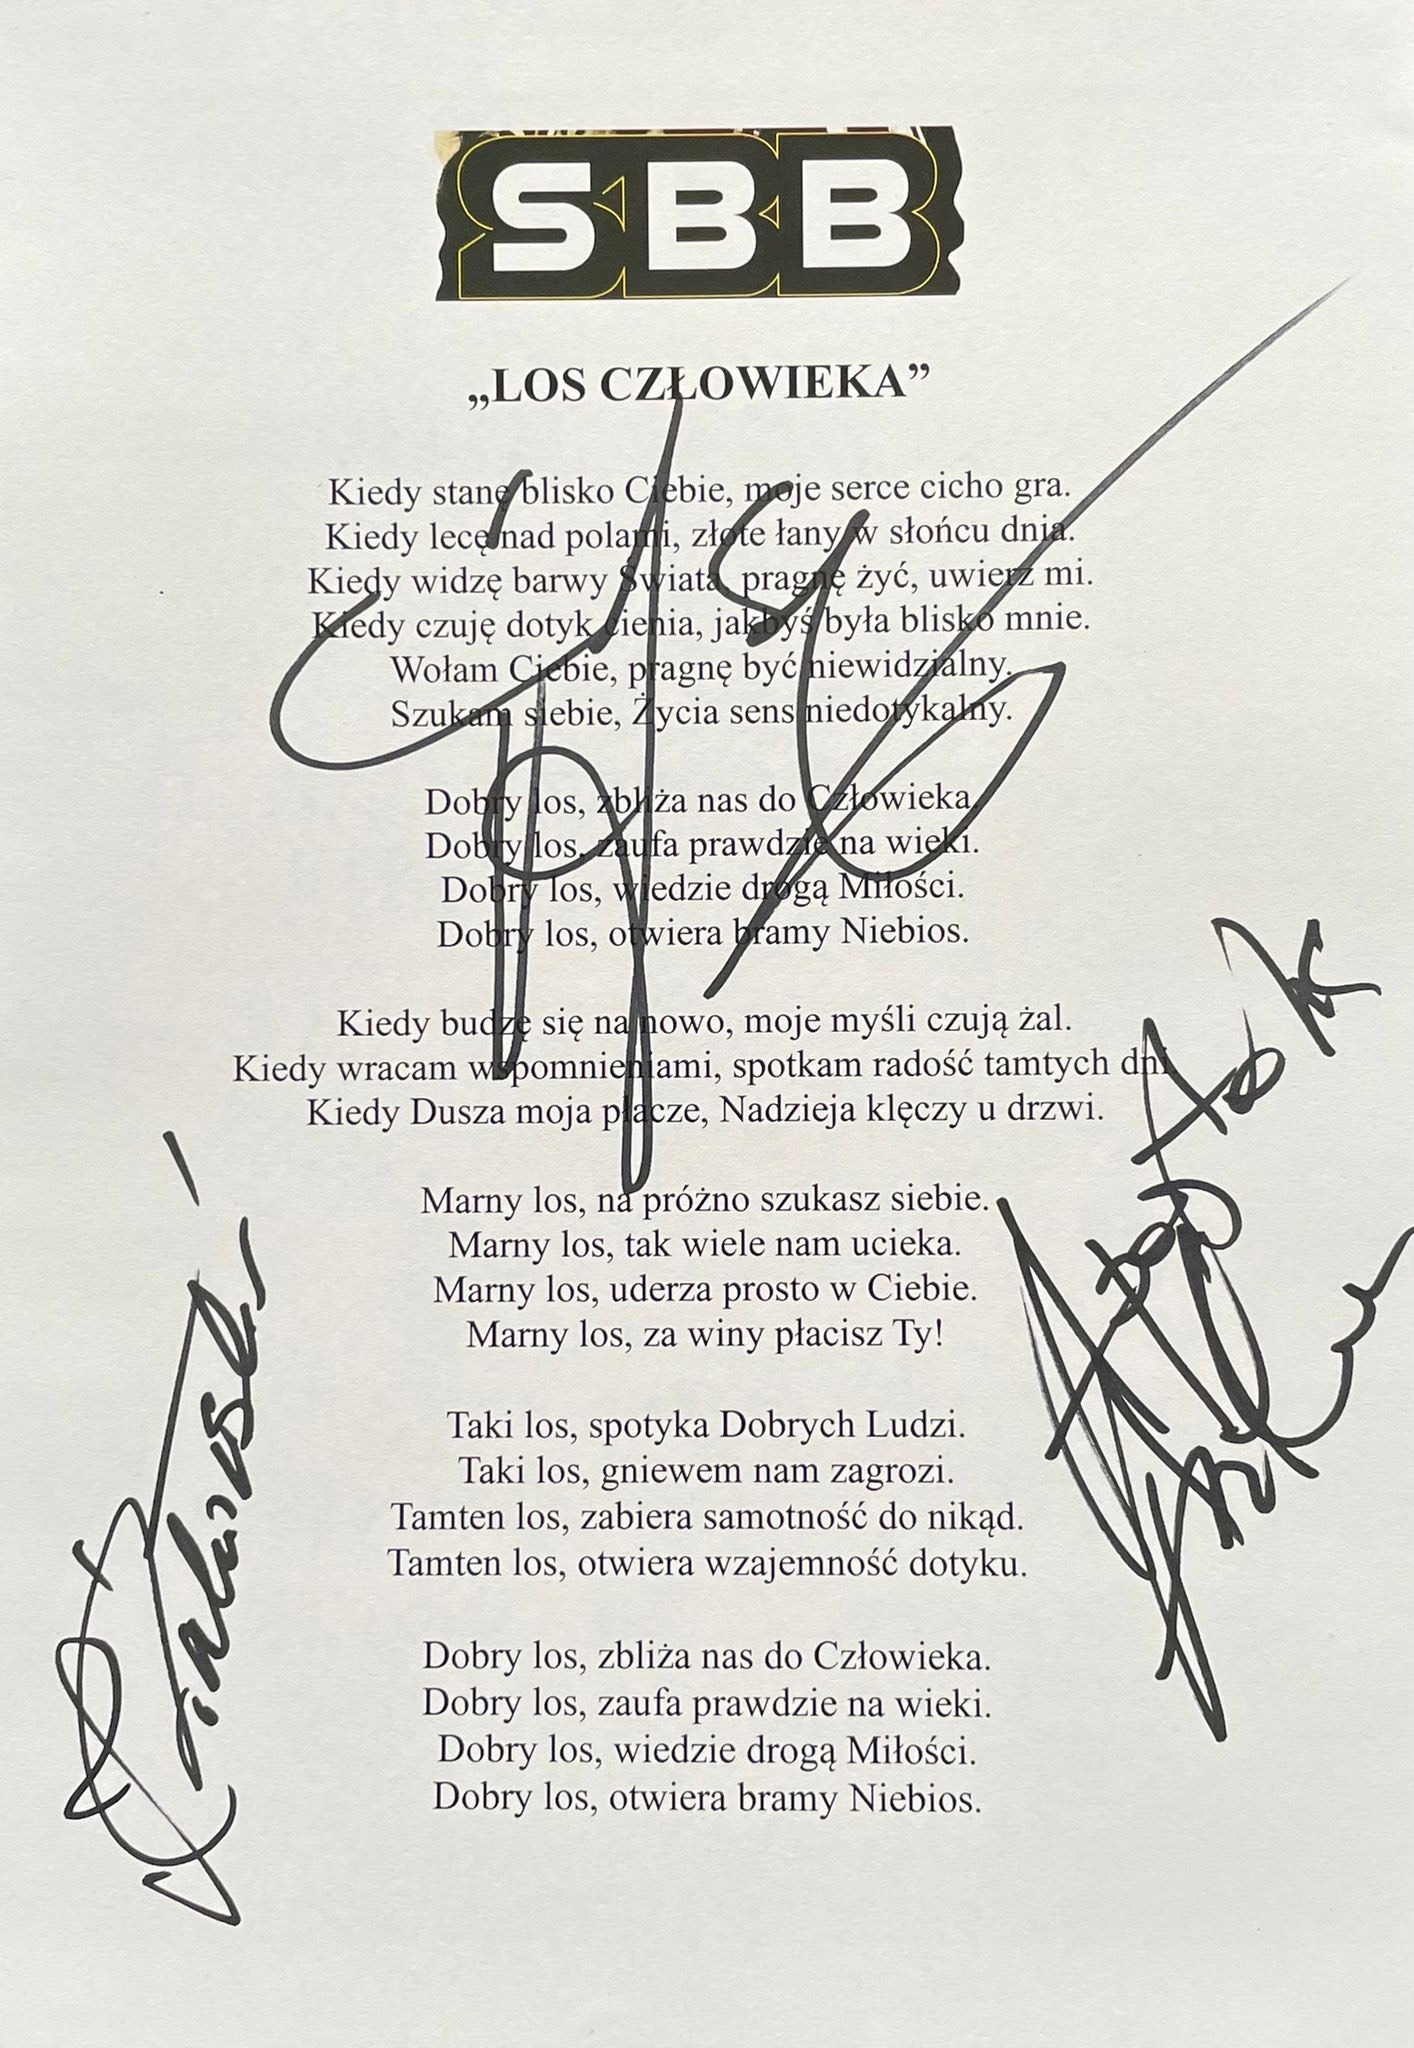 SBB
„LOS CZŁOWIEKA”
Kiedy stanę blisko Ciebie, moje serce cicho gra.
Kiedy lecę nad polami, złote łany w słońcu dnia.
Kiedy widzę barwy Świata, pragnę żyć, uwierz mi.
Kiedy czuję dotyk cienia, jakbyś była blisko mnie.
Wołam Ciebie, pragnę być niewidzialny.
Szukam siebie, Życia sens niedotykalny.
Dobry los, zbliża nas do Człowieka.
Dobry los, zaufa prawdzie na wieki.
Dobry los, wiedzie drogą Miłości.
Dobry los, otwiera bramy Niebios.
Kiedy budzę się na nowo, moje myśli czują żal.
Kiedy wracam wspomnieniami, spotkam radość tamtych dni
Kiedy Dusza moja płacze, Nadzieja klęczy u drzwi.
Marny los, na próżno szukasz siebie.
Marny los, tak wiele nam ucieka.
Marny los, uderza prosto w Ciebie.
Marny los, za winy płacisz Ty!
Taki los, spotyka Dobrych Ludzi.
Taki los, gniewem nam zagrozi.
Tamten los, zabiera samotność do nikąd.
Tamten los, otwiera wzajemność dotyku.
Dobry los, zbliża nas do Człowieka.
Dobry los, zaufa prawdzie na wieki.
Dobry los, wiedzie drogą Miłości.
Dobry los, otwiera bramy Niebios.